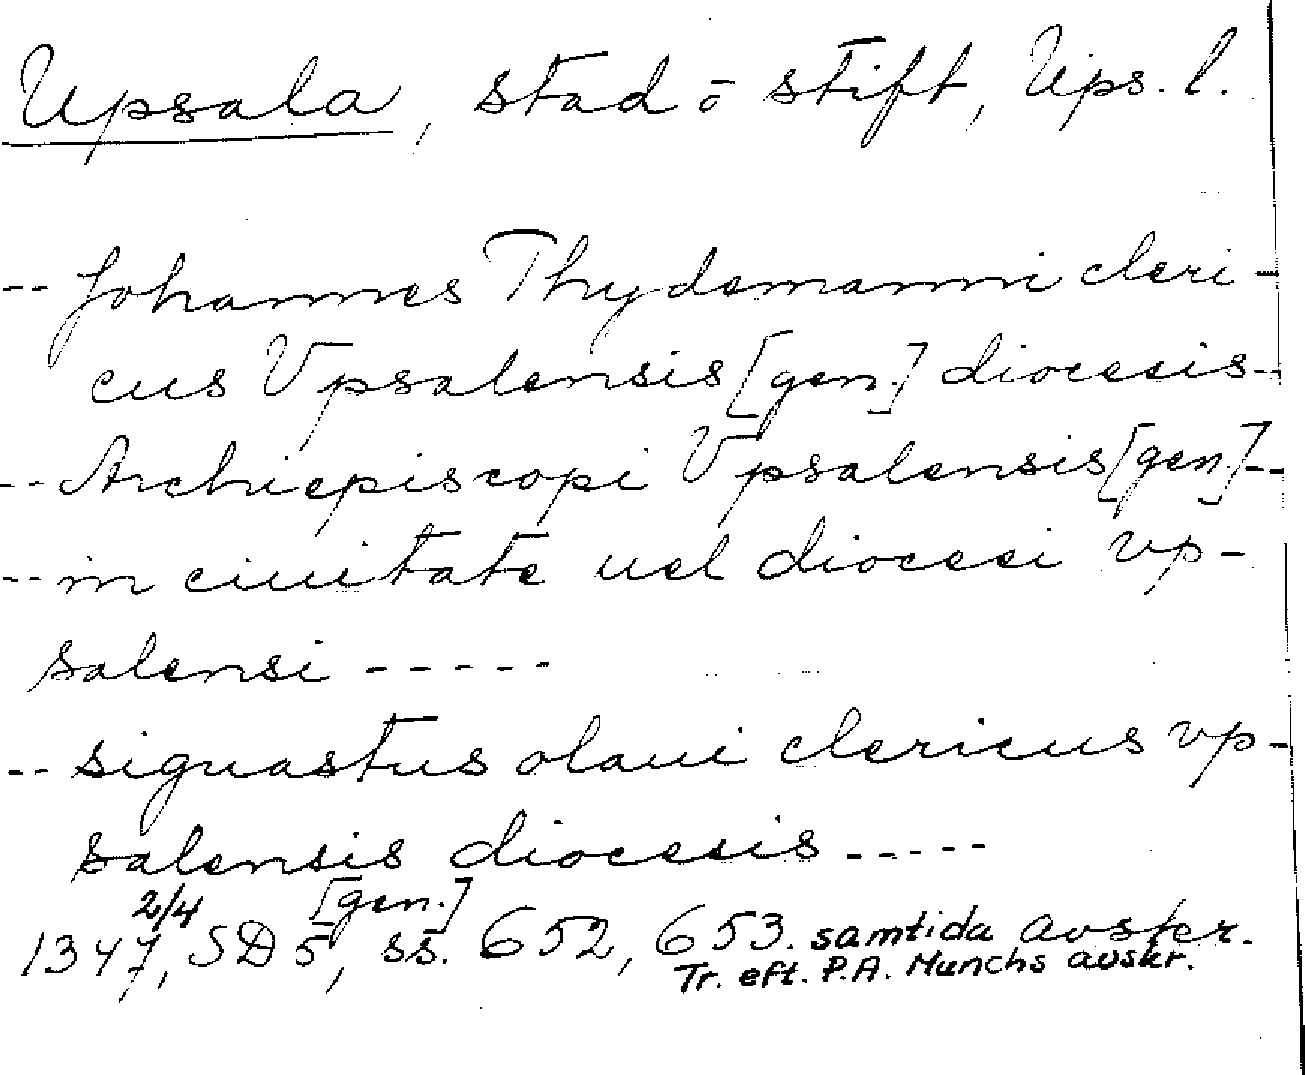 Upsala, stad o stift, Ups. l.
-- Johannes Thydemanni cleri-
cus Vpsalensis [gen.] diocesis --
-- Archiepiscopi Vpsalensis [gen.] --
-- in ciuitate uel diocesi vp-
salensi -----
-- siguastus olaui clericus vp-
salensis diocesis -----
2/4 [gen.]
1347, SD 5, ss. 652, 653. samtida avskr.
Tr. eft. P.A. Munchs avskr.